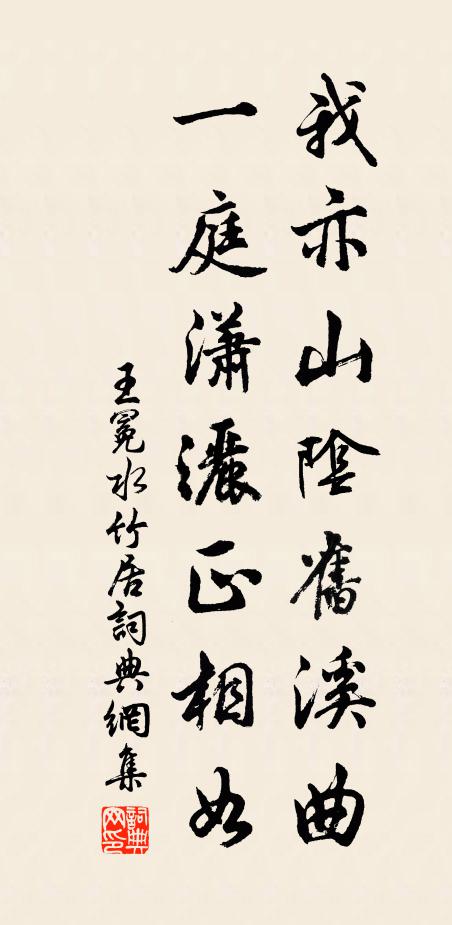 我亦山陰舊溪曲
一庭瀟灑正相如
王冕水竹居詞典網集
詞典网印